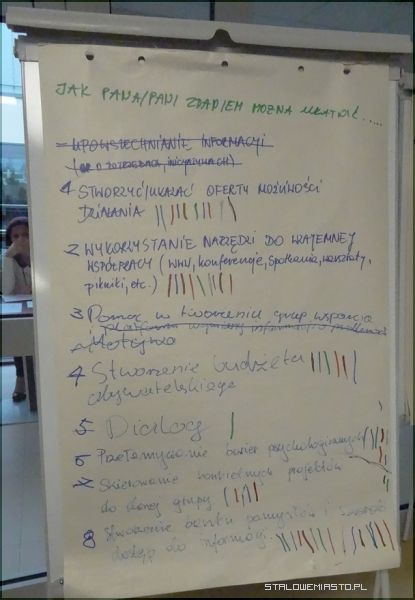 JAK PANA/PANI ZDANIEM MOŻNA UŁATWIĆ.....
- UPOWSZECHNIANIE INFORMACJI
(NP O POTRZEBACH, INICJATYWACH)
1 STWORZYĆ/UKAZAĆ OFERTY MOŻLIWOŚCI
DZIAŁANIA
2 WYKORZYSTANIE NARZĘDZI DO WZAJEMNEJ
WSPÓŁPRACY (WWW, konferencje, spotkania, warsztaty,
pikniki, etc.)
3 Pomoc w tworzeniu grup wsparcia
i Platforma wymiany informacji o
4 Stworzenie budżetu
obywatelskiego
5 Dialog
6 Przełamywanie barier psychologicznych
7 Skierowanie konkretnych projektów
do danej grupy
8 Stworzenie banku pomysłów i
dostęp do informacji
STALOWEMIASTO.PL